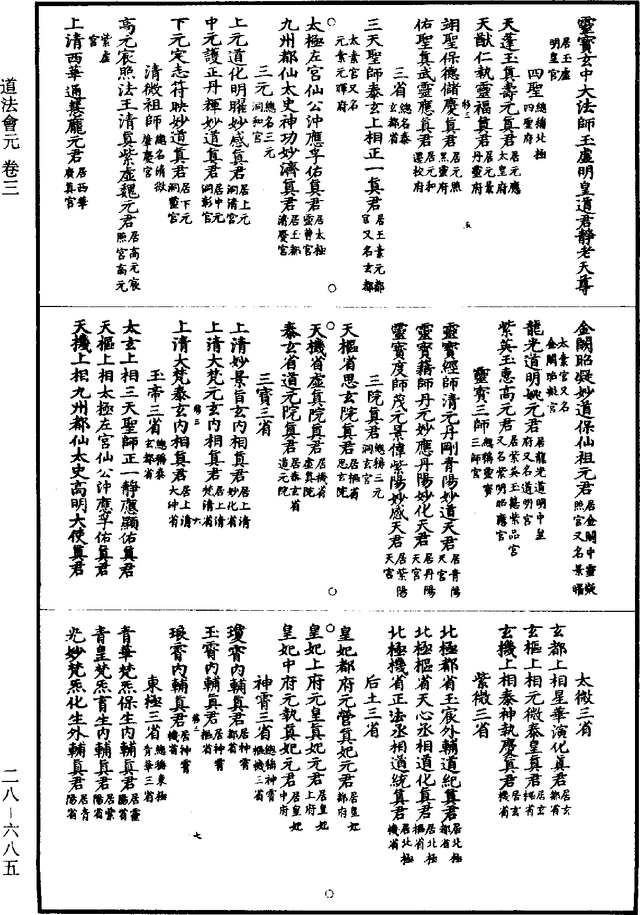 道法會元 卷三
二八－六八五
靈寶玄中大法師玉虛明皇道君靜老天尊 居玉虛明皇宮
四聖 總稱北極四聖府
天蓬玉真壽元真君 居元應太皇府
天猷仁執靈福真君 居元景丹靈府
翊聖保德儲慶真君 居元照黑靈府
佑聖真武靈應真君 居元和遷校府
三省 總名泰玄都省
三天聖師泰玄上相正一真君 居玉素元都宮又名玄都
太素宮又名元素元輝府
太極左宮仙公沖應孚佑真君 居太極靈書宮
九州都仙太史神功妙濟真君 居玉都清賢宮
三元 總名三元洞和宮
上元道化明曜妙感真君 居上元洞清宮
中元護正丹輝妙道真君 居中元洞彰宮
下元定志符映妙道真君 居下元洞靈宮
清微祖師 總名清微肇慶宮
高元宸照法王清真紫虛魏元君 居高元宸照宮高元
紫虛宮
上清西華通惠龐元君 居西華廣真宮
金闕昭凝妙道保仙祖元君 居金闕中靈凝照宮又名景曜
太素宮又名金闕昭凝宮
龍光道明姚元君 居龍光道明中皇府又名道明宮
紫英玉惠高元君 居紫英玉蕙紫品宮又名紫明昭應宮
靈寶三師 總稱靈寶三師宮
靈寶經師清元丹剛青陽妙道天君 居青陽天宮
靈寶籍師丹元妙應丹陽妙化天君 居丹陽天宮
靈寶度師茂元景偉紫陽妙感天君 居紫陽天宮
三院真君 總稱三元洞玄宮
天樞省思玄院真君 居樞省思玄院
天機省虛真院真君 居機省虛真院
泰玄省道元院真君 居泰玄省道元院
三寶三省
上清妙景旨玄內相真君 居上清妙化省
上清大梵元玄內相真君 居上清梵清省
上清大梵泰玄內相真君 居上清大沖省
玉帝三省 總稱泰玄都省
太玄上相三天聖師正一靜應顯佑真君
天樞上相太極左宮仙公沖應孚佑真君
天機上相九州都仙太史高明大使真君
太微三省
玄都上相星華演化真君 居玄都省
玄樞上相元微泰皇真君 居玄樞省
玄機上相泰神執慶真君 居玄機省
紫微三省
北極都省玉宸外輔道紀真君 居北極都省
北極樞省天心丞相道化真君 居北極樞省
北極機省正法丞相道統真君 居北極機省
后土三省
皇妃都府元營真妃元君 居皇妃都府
皇妃上府元皇真妃元君 居皇妃上府
皇妃中府元執真妃元君 居皇妃中府
神霄三省 總稱神霄樞機三省
瓊霄內輔真君 居神霄都省
玉霄內輔真君 居神霄樞省
琅霄內輔真君 居神霄機省
東極三省 總稱東極青華三省
青華梵炁保生內輔真君 居靈陽省
青皇梵炁育生內輔真君 居靈陽省
光妙梵炁化生外輔真君 居青陽省